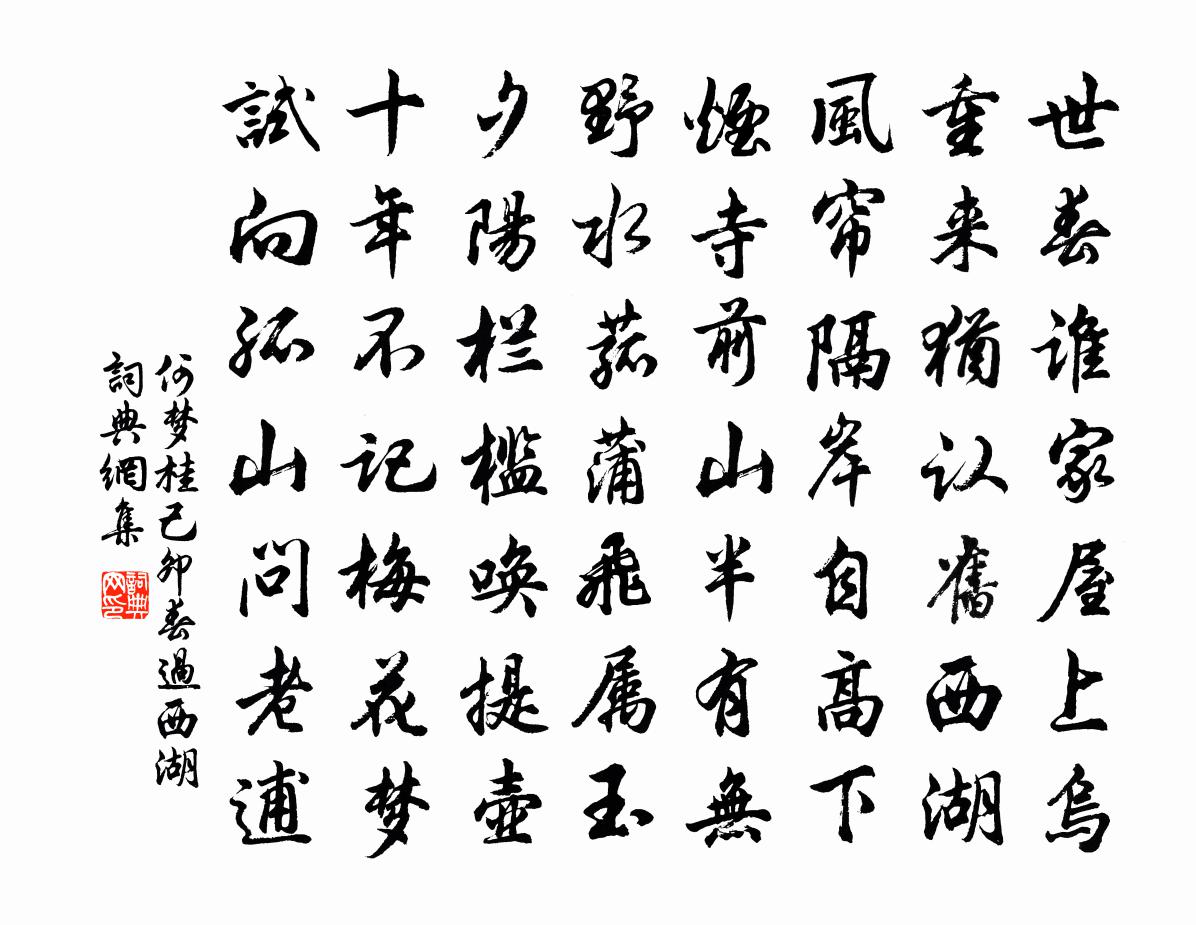 世春谁家屋上烏
重来猶认舊西湖
風帘隔岸自高下
煙寺前山半有無
野水菰蒲飛属玉
夕陽栏槛唤提壶
十年不记梅花梦
試向孤山问老逋
何梦桂己卯春過西湖
詞典網集
詞典
网印